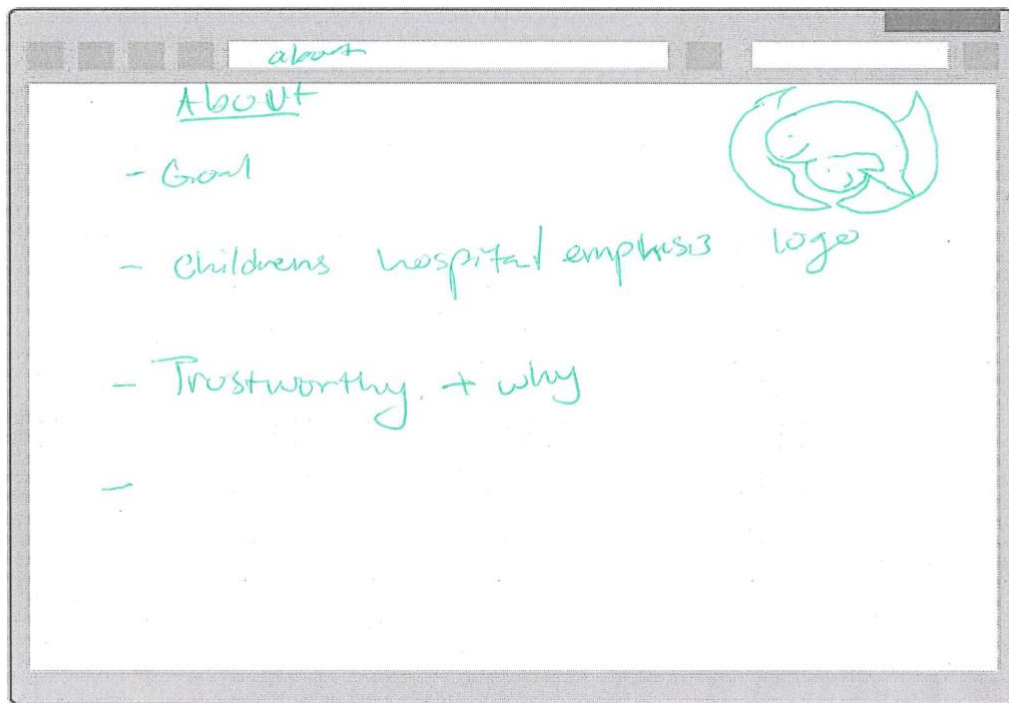 about
About
- Goal
- Childrens hospital emphasis
logo
- Trustworthy. + why
-